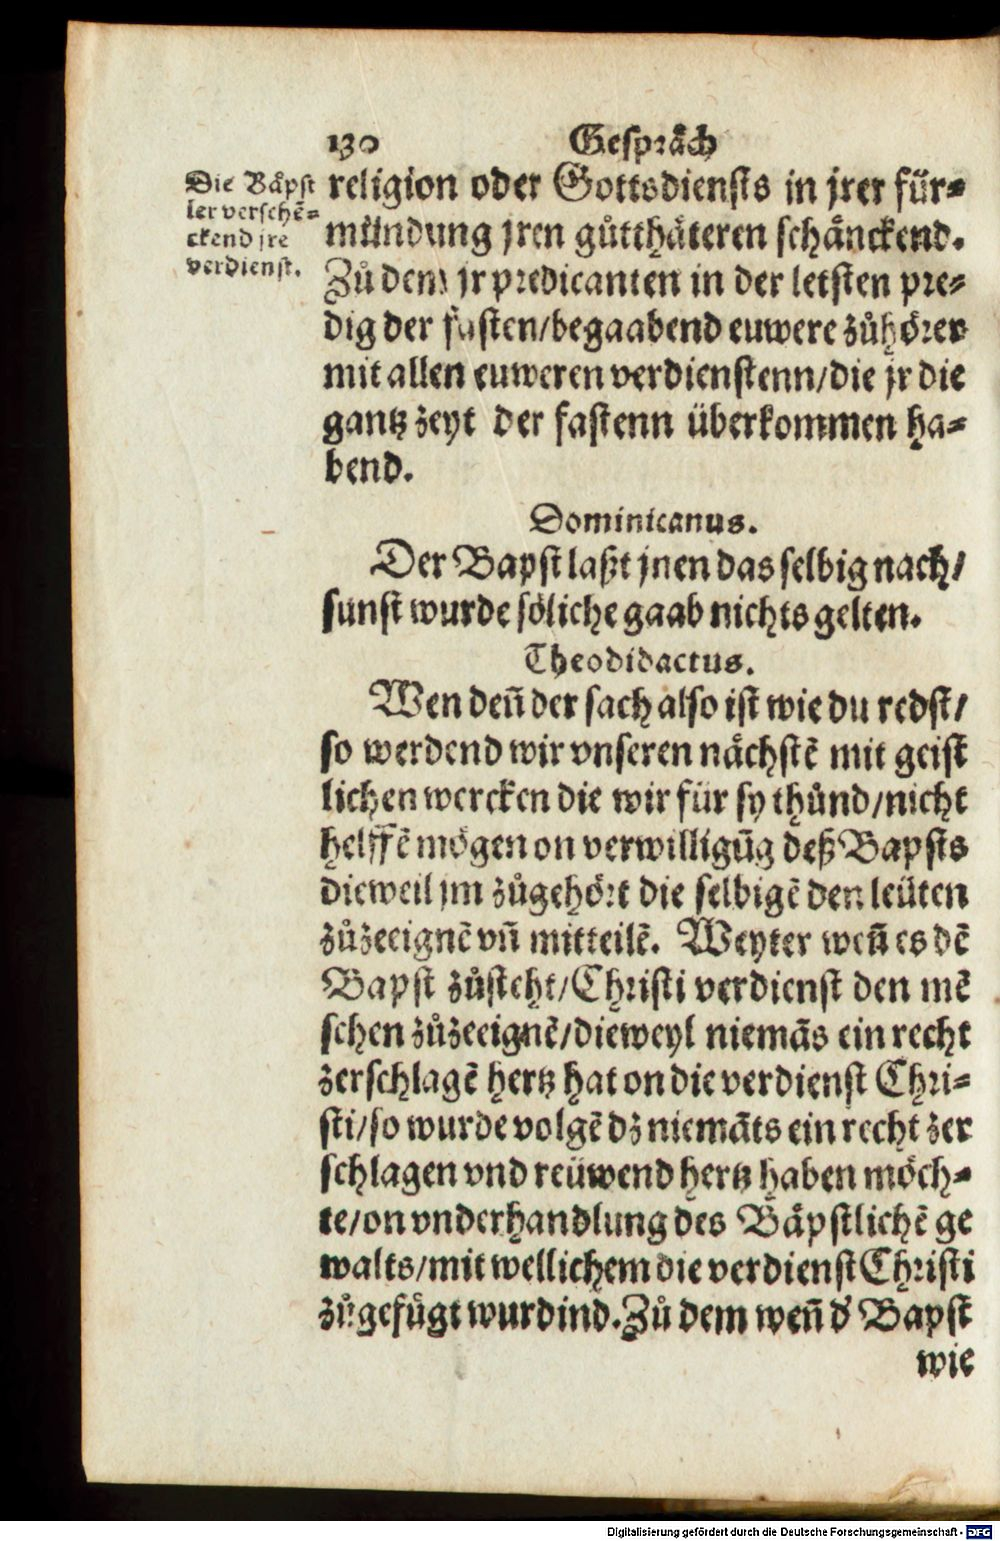 130 Gespräch
Die Bäpst
ler verschē-
ckend jre
verdienst.
religion oder Gottsdiensts in jrer für-
mündung jren gůtthäteren schänckend.
Zů dem jr predicanten in der letsten pre-
dig der fasten/begaabend euwere zůhörer
mit allen euweren verdienstenn/die jr die
gantz zeyt der fastenn überkommen ha-
bend.
Dominicanus.
Der Bapst laßt jnen das selbig nach/
sunst wurde söliche gaab nichts gelten.
Theodidactus.
Wen den̄ der sach also ist wie du redst/
so werdend wir vnseren nächstē mit geist
lichen wercken die wir für sy thůnd/nicht
helffē mögen on verwilligūg deß Bapsts
dieweil jm zůgehört die selbigē den leüten
zůzeeignē vn̄ mitteilē. Weyter wen̄ es dē
Bapst zůsteht/Christi verdienst den mē
schen zůzeeignē/dieweyl niemās ein recht
zerschlagē hertz hat on die verdienst Chri-
sti/so wurde volgē dz niemāts ein recht zer
schlagen vnd reüwend hertz haben möch-
te/on vnderhandlung des Bäpstlichē ge
walts/mit wellichem die verdienst Christi
zůgefügt wurdind. Zů dem wen̄ d' Bapst
wie
Digitalisierung gefördert durch die Deutsche Forschungsgemeinschaft - DFG